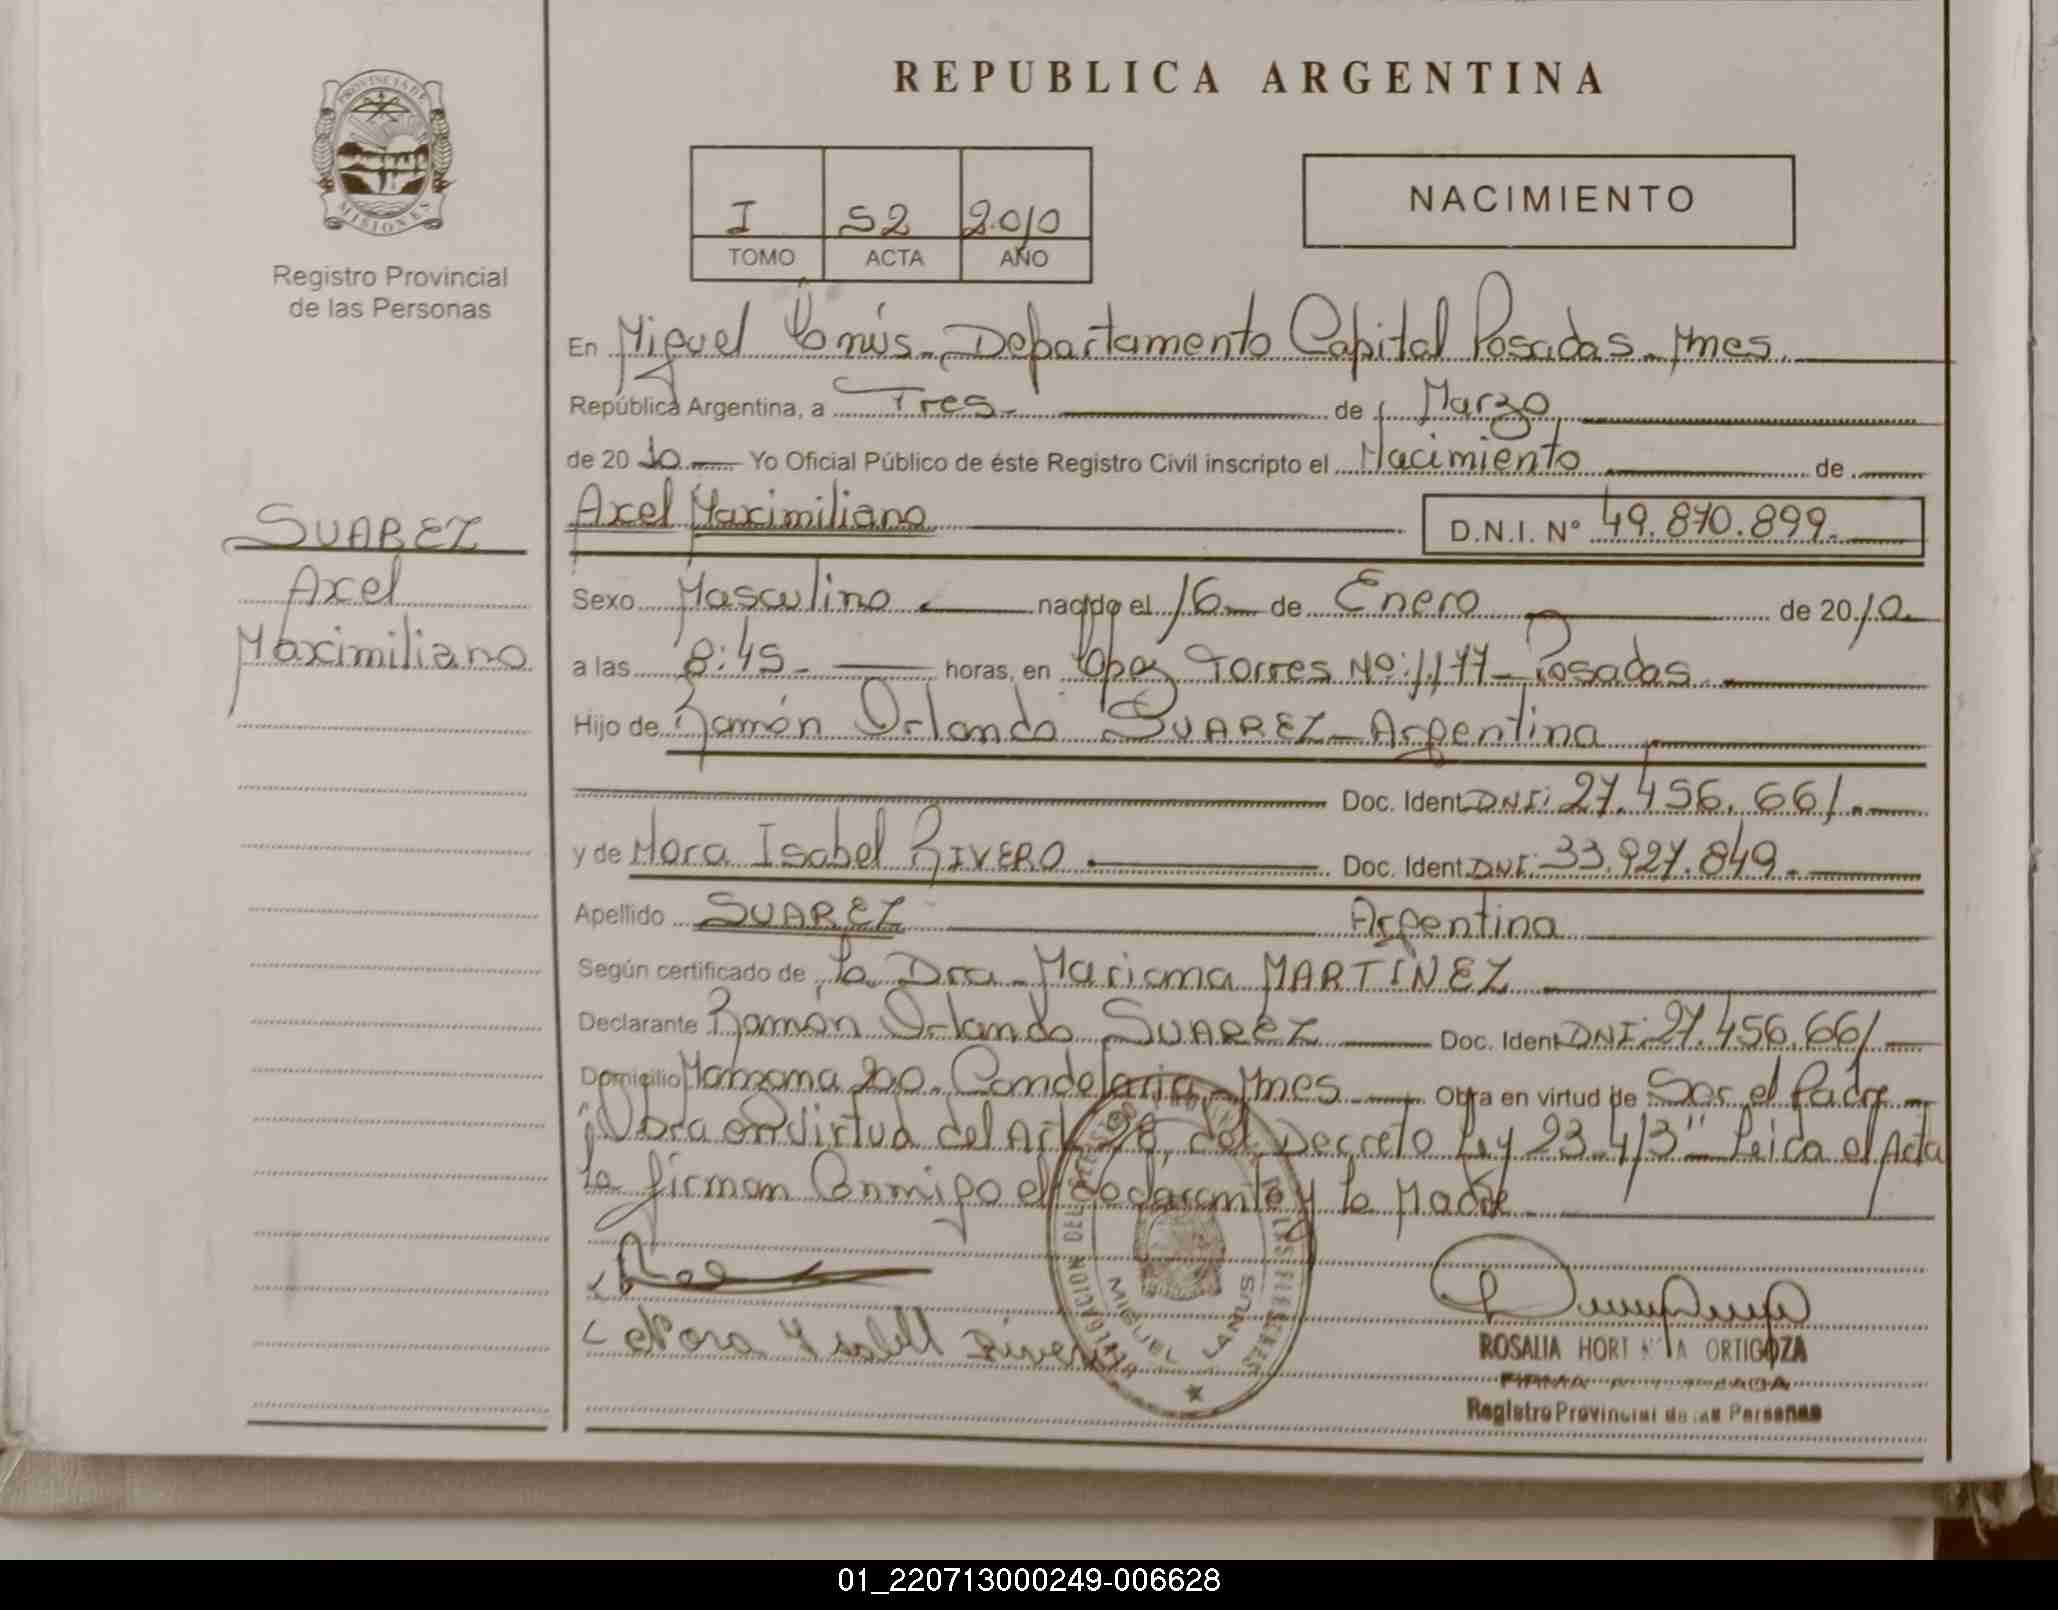 REPUBLICA ARGENTINA
PROVINCIA DE MISIONES
Registro Provincial
de las Personas
I 52 2010
TOMO ACTA AÑO
NACIMIENTO
En Miguel Lanús - Departamento Capital Posadas - Mnes.
República Argentina, a Tres. de Marzo
de 2010 Yo Oficial Público de éste Registro Civil inscripto el Nacimiento de
Axel Maximiliano D.N.I. Nº 49.870.899.
SUAREZ
Axel
Maximiliano
Sexo Masculino nacido el 16 de Enero de 2010.
a las 8:45 horas, en López Torres Nº: 1177 - Posadas
Hijo de Ramón Orlando SUAREZ - Argentina
Doc. Ident. DNI: 27.456.661.
y de Nora Isabel RIVERO Doc. Ident. DNI: 33.927.849.
Apellido SUAREZ Argentina
Según certificado de la Dra. Mariana MARTÍNEZ
Declarante Ramón Orlando SUAREZ Doc. Ident DNI: 27.456.661
Domicilio Manzana 200. Candelaria - Mnes Obra en virtud de Ser el Padre
"Obra en virtud del Art. 28, del Decreto Ley 23.413" Leída el Acta
la firman Conmigo el declarante y la Madre
Nora Ysabell Rivero
DELEGACION DEL REGISTRO DE LAS PERSONAS
MIGUEL LANUS
ROSALIA ORTIGOZA
FIRMA
Registro Provincial de las Personas
01_220713000249-006628